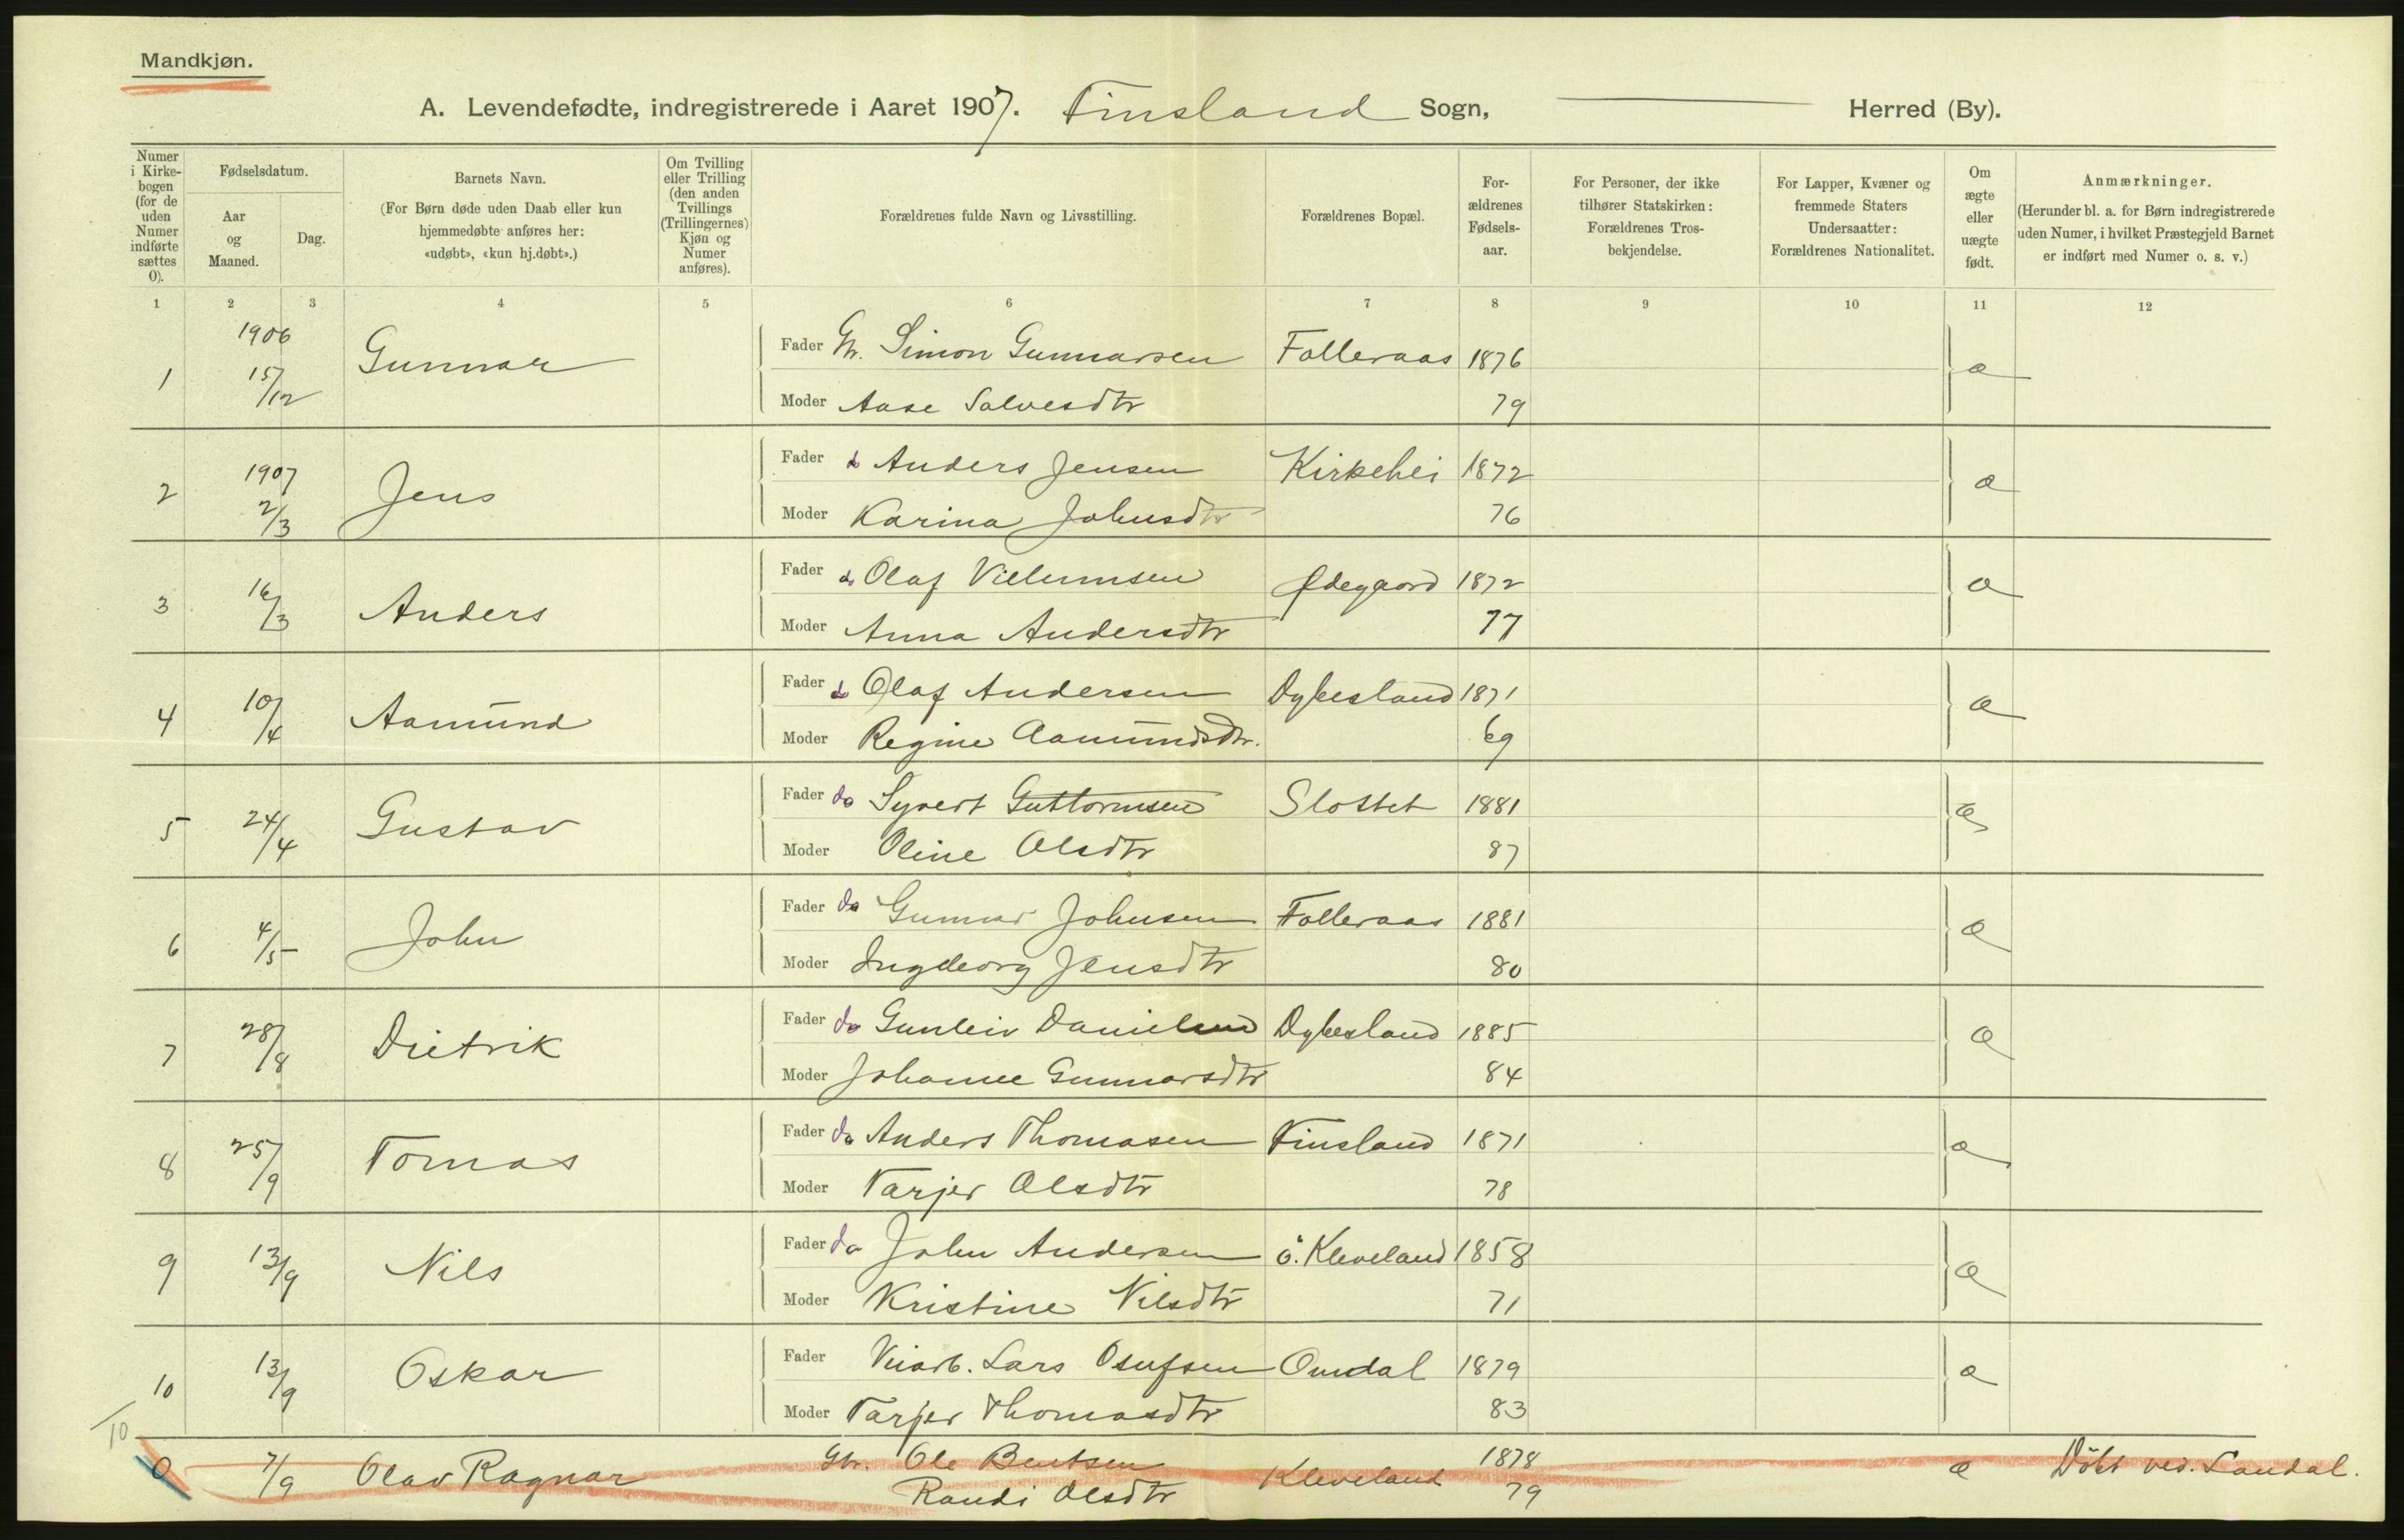 Mandkjøn.
A. Levendefødte, indregistrerede i Aaret 1907. Finsland Sogn, Herred (By).
Numer i Kirkebogen (for de uden Numer indførte sættes 0).
Fødselsdatum.
Aar og Maaned.
Dag.
Barnets Navn.
(For Børn døde uden Daab eller kun hjemmedøbte anføres her: «udøbt», «kun hj.døbt».)
Om Tvilling eller Trilling (den anden Tvillings (Trillingernes) Kjøn og Numer anføres).
Forældrenes fulde Navn og Livsstilling.
Forældrenes Bopæl.
For-ældrenes Fødsels-aar.
For Personer, der ikke tilhører Statskirken: Forældrenes Tros-bekjendelse.
For Lapper, Kvæner og fremmede Staters Undersaatter: Forældrenes Nationalitet.
Om ægte eller uægte født.
Anmærkninger.
(Herunder bl. a. for Børn indregistrerede uden Numer, i hvilket Præstegjeld Barnet er indført med Numer o. s. v.)
1 2 3 4 5 6 7 8 9 10 11 12
1 1906 15/12 Gunnar Fader Gr. Simon Gunnarsen Folleraas 1876 æ
Moder Aase Salvesdtr 79
2 1907 2/3 Jens Fader do Anders Jensen Kirkehei 1872 æ
Moder Karina Johnsdtr 76
3 16/3 Anders Fader do Olaf Villumsen Ødegaard 1872 æ
Moder Anna Andersdtr 77
4 10/4 Aamund Fader do Olaf Andersen Dybesland 1871 æ
Moder Regine Aamundsdtr. 69
5 24/4 Gustav Fader do Syvert Guttormsen Slottet 1881 æ
Moder Oline Olsdtr 87
6 4/5 John Fader do Gunnar Johnsen Folleraas 1881 æ
Moder Ingeborg Jensdtr 80
7 28/8 Dietrik Fader do Gunleiv Danielsen Dybesland 1885 æ
Moder Johanne Gunnarsdtr 84
8 25/9 Tomas Fader do Anders Thomasen Finsland 1871 æ
Moder Tarjer Olsdtr 78
9 13/9 Nils Fader do John Andersen ö. Kleveland 1858 æ
Moder Kristine Nilsdtr 71
10 13/9 Oskar Fader Veiarb. Lars Osufsen Omdal 1879 æ
Moder Tarjer Thomasdtr 83
10
0 7/9 Olav Ragnar Gbr. Ole Bentsen Kleveland 1878 æ Döbt ved. Laudal.
Randi Olsdtr 79